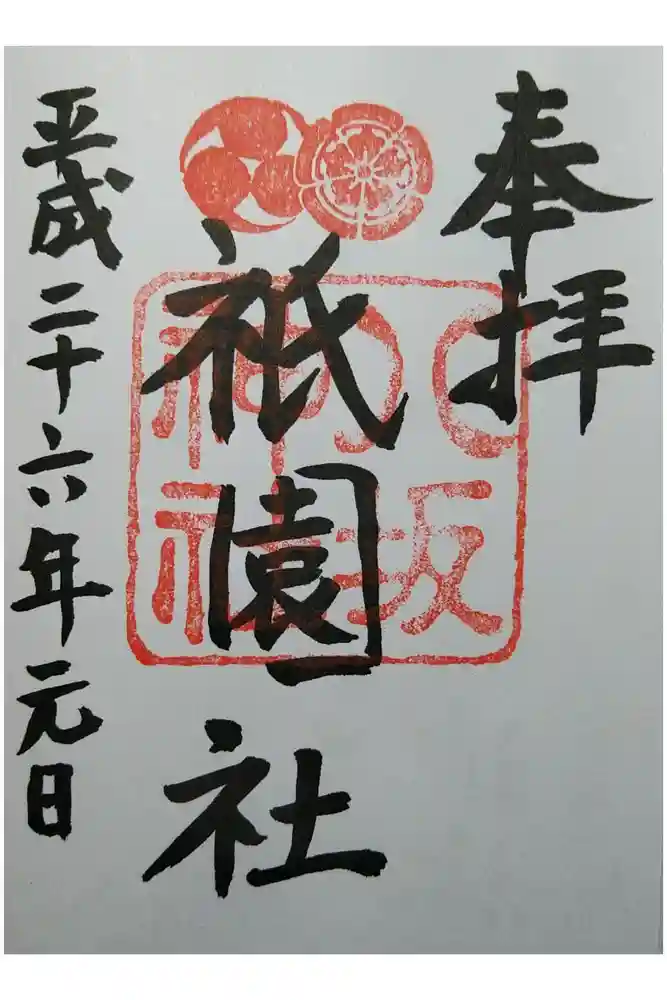 奉拝
八坂
神社
祇園社
平成二十六年元日